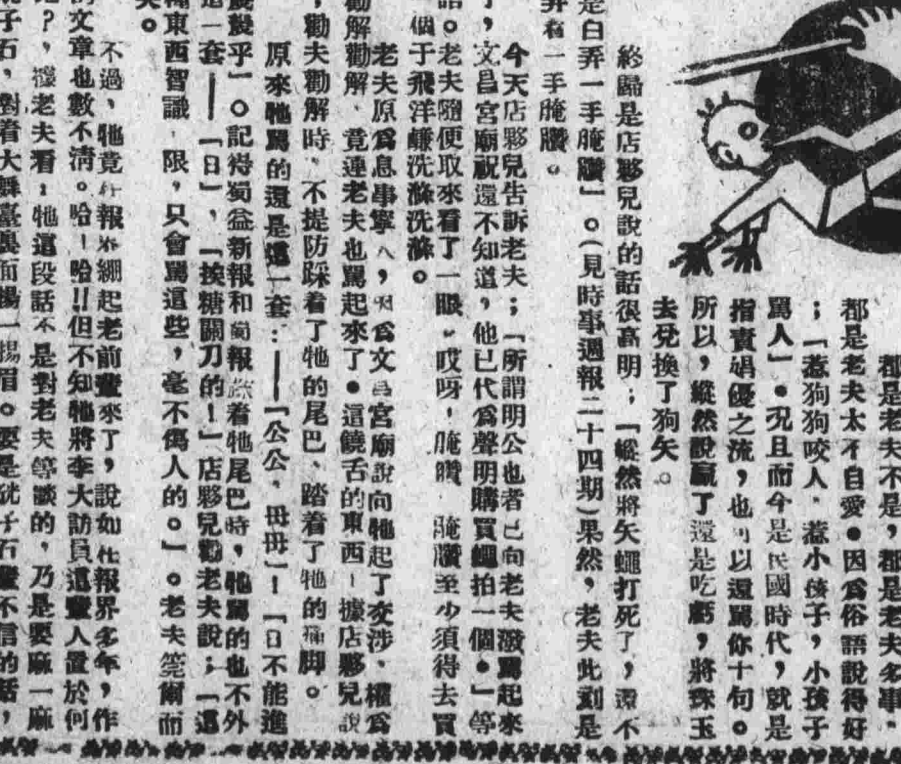 都是老夫不是,都是老夫多事。
都是老夫太不自愛。因爲俗語說得好
;「惹狗狗咬人。惹小孩子,小孩子
罵人」。况且而今是民國時代,就是
指賣娼優之流,也可以還罵你十句。
所以,縱然說贏了還是吃虧,將珠玉
去兌換了狗矢。
終歸是店夥兒說的話很高明;「縱然將矢蠅打死了,還不
是白弄一手腌臢」。(見時事週報二十四期)果然,老夫此刻是
弄着一手腌臢。
今天店夥兒吿訴老夫;「所謂明公也者已向老夫潑罵起來
了,文昌宮廟祝還不知道,他已代爲聲明購買蠅拍一個。」等
語。老夫隨便取來看了一眼。哎呀!腌臢 腌臢至少須得去買
個于飛洋鹻洗滌洗滌。
老夫原爲息事寧人,因爲文昌宮廟說向牠起了交涉、權爲
勸解勸解、竟連老夫也罵起來了。這饒舌的東西!據店夥兒說
,勸夫勸解時、不提防踩着了牠的尾巴、踏着了牠的痛脚。
原來牠罵的還是這一套:——「公公,毋毋」!「日不能進
乎」。記得蜀益新報和蜀報踩着牠尾巴時,牠罵的也不外
這一套——「日」,「挨糖關刀的!」店夥兒勸老夫說;「這
東西智識 限,只會罵這些,毫不傷人的。」。老夫莞爾而
笑。
不過,牠竟在報來綳起老前輩來了,說如在報界多年,作
的文章也數不淸。哈!哈!!但不知牠將李大訪員這輩人置於何
?,據老夫看!牠這段話不是對老夫等談的,乃是要麻一麻
子石,對着大舞臺裏面揚一揚眉。要是 子石輩不信的話,